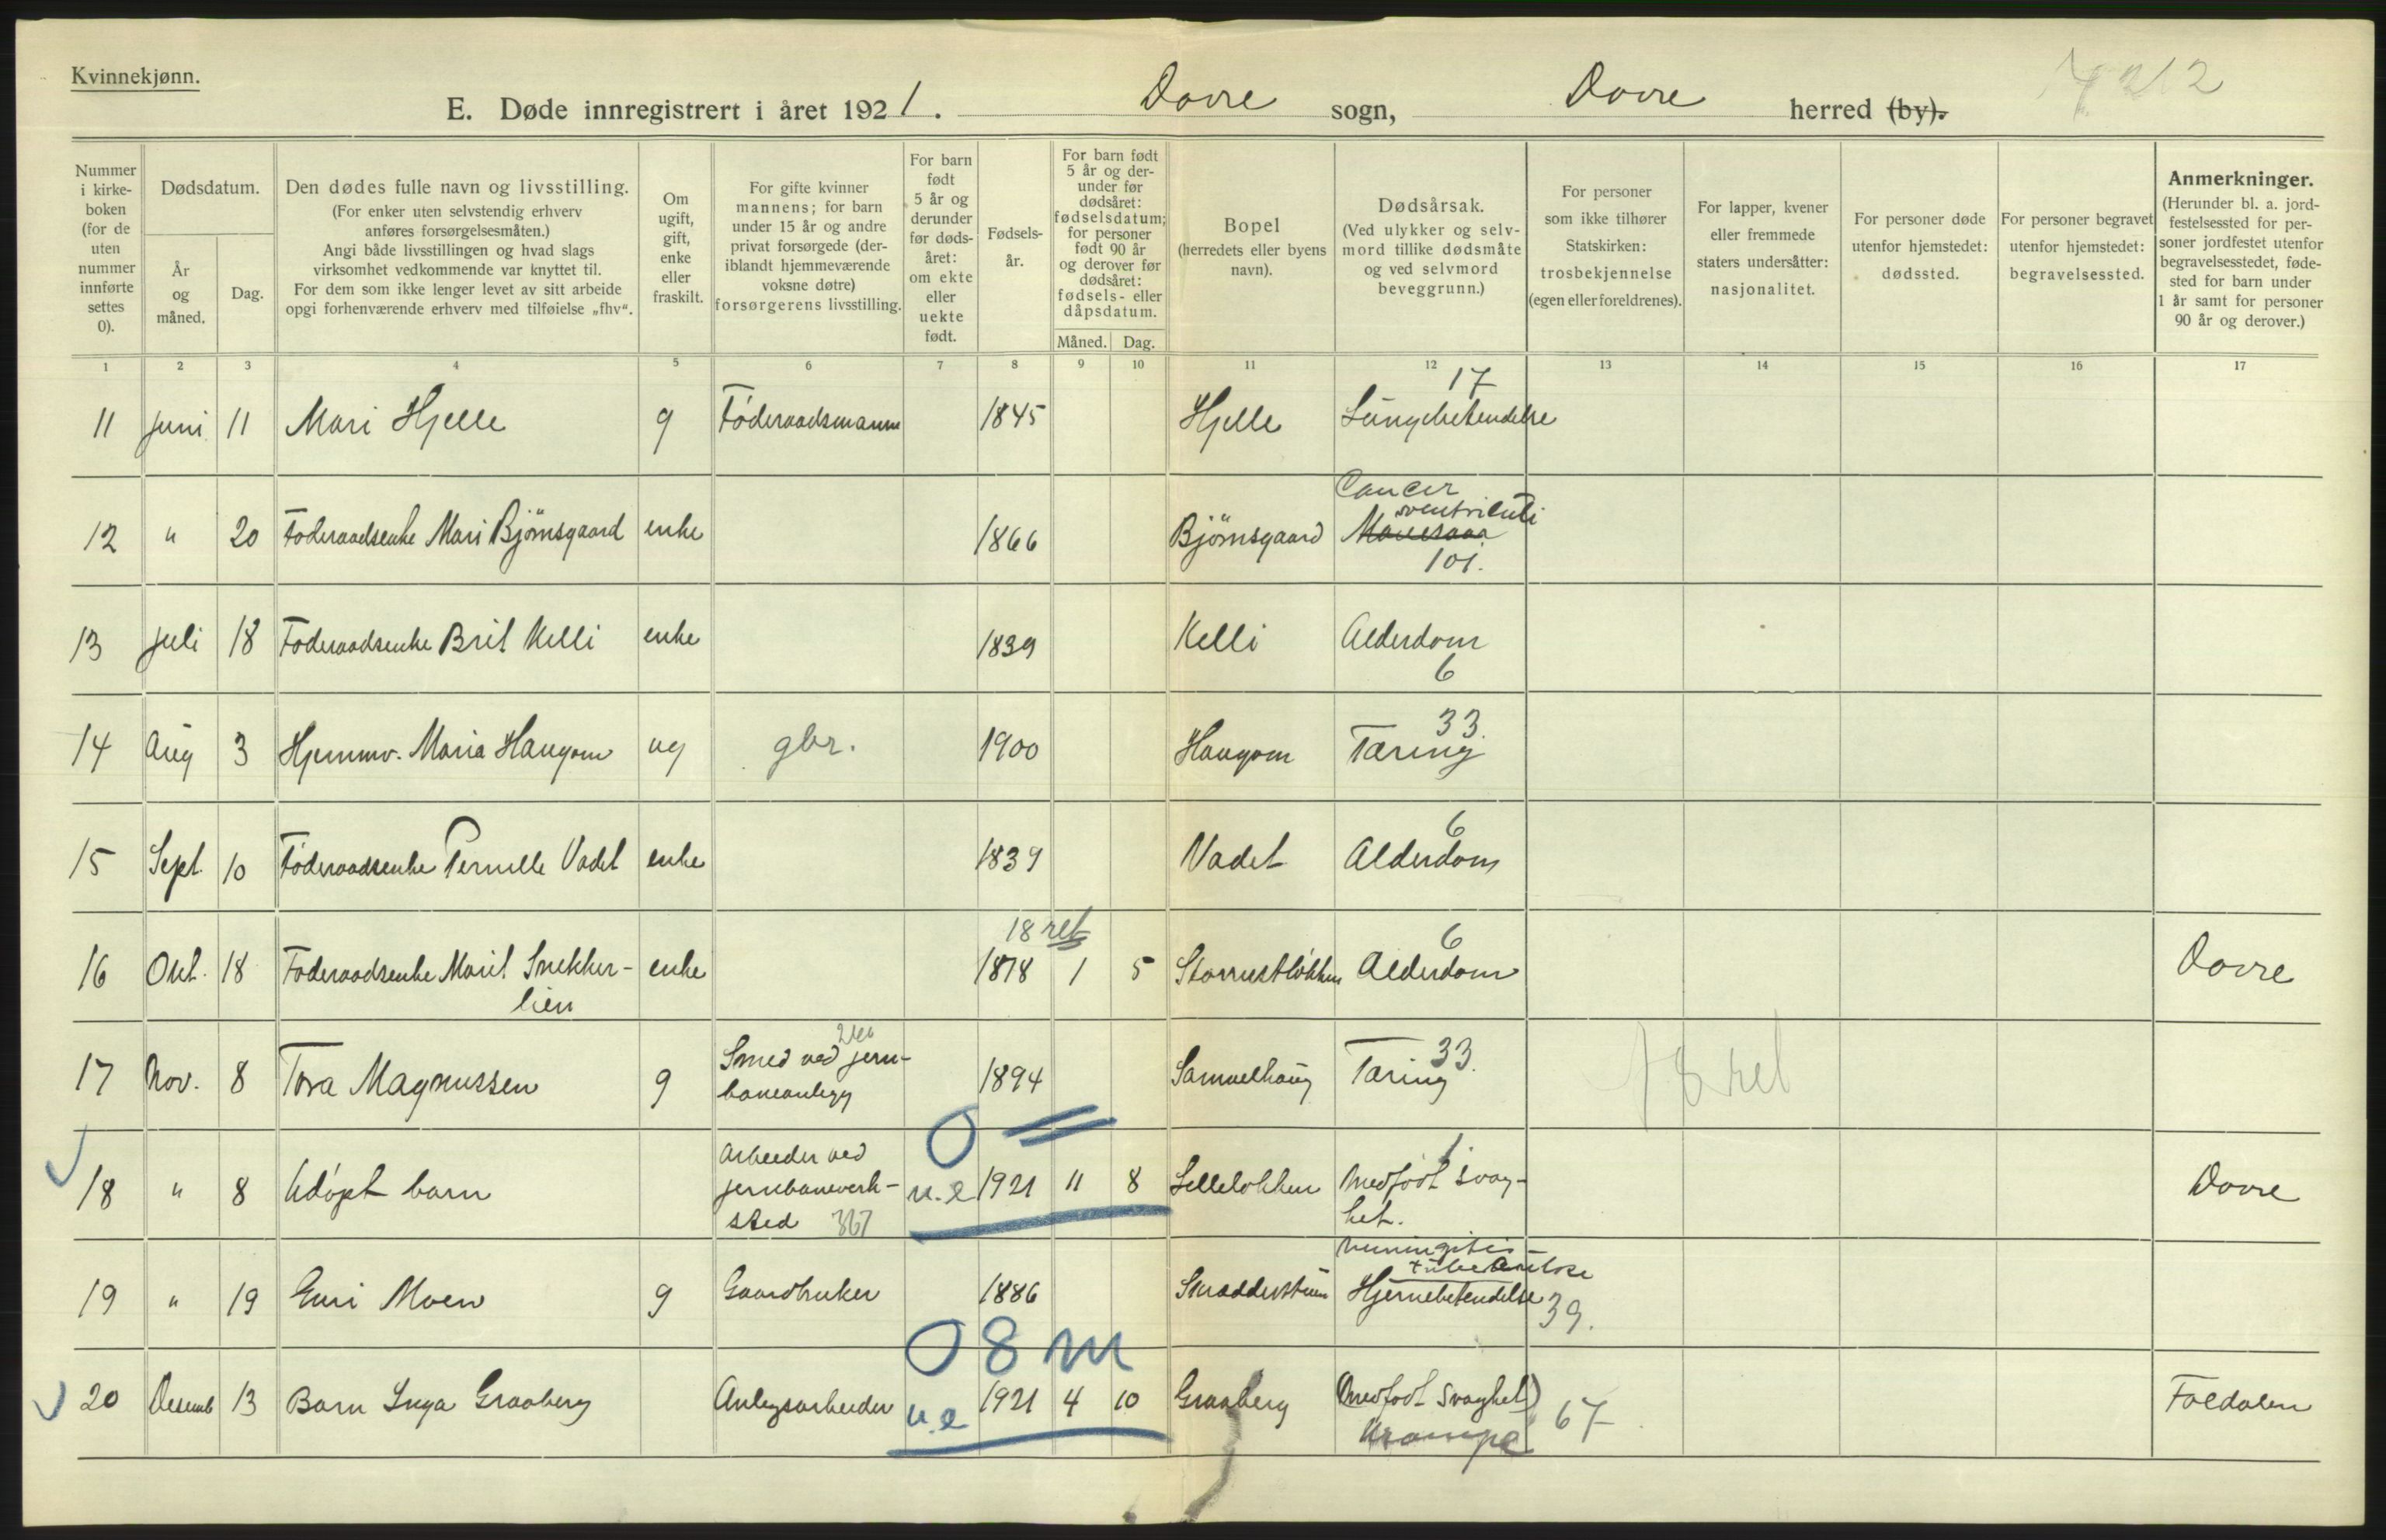 Kvinnekjønn.
E. Døde innregistrert i året 1921. Dovre sogn, Dovre herred (by).
212
Nummer i kirke- boken (for de uten nummer innførte settes 0).
Dødsdatum.
År og måned.
Dag.
Den dødes fulle navn og livsstilling.
(For enker uten selvstendig erhverv
anføres forsørgelsesmåten.)
Angi både livsstillingen og hvad slags
virksomhet vedkommende var knyttet til.
For dem som ikke lenger levet av sitt arbeide
opgi forhenværende erhverv med tilføielse „fhv“.
Om ugift, gift, enke eller fraskilt.
For gifte kvinner
mannens; for barn
under 15 år og andre
privat forsørgede (der-
iblandt hjemmeværende
voksne døtre)
forsørgerens livsstilling.
For barn født 5 år og derunder før døds- året: om ekte eller uekte født.
Fødsels- år.
For barn født
5 år og der-
under før
dødsåret:
fødselsdatum;
for personer
født 90 år
og derover før
dødsåret:
fødsels- eller
dåpsdatum.
Måned. Dag.
Bopel
(herredets eller byens
navn).
Dødsårsak.
(Ved ulykker og selv-
mord tillike dødsmåte
og ved selvmord
beveggrunn.)
For personer
som ikke tilhører
Statskirken:
trosbekjennelse
(egen eller foreldrenes).
For lapper, kvener
eller fremmede
staters undersåtter:
nasjonalitet.
For personer døde
utenfor hjemstedet:
dødssted.
For personer begravet
utenfor hjemstedet:
begravelsessted.
Anmerkninger.
(Herunder bl. a. jord-
festelsessted for per-
soner jordfestet utenfor
begravelsesstedet, føde-
sted for barn under
1 år samt for personer
90 år og derover.)
1 2 3 4 5 6 7 8 9 10 11 12 13 14 15 16 17
17
11 Juni 11 Mari Hjelle g Föderaadsmann 1845 Hjelle Lungebetendelse
Cancer
ventriculi
12 " 20 Föderaadsenke Mari Björnsgaard enke 1866 Björnsgaard
101.
13 Juli 18 Föderaadsenke Brit Kelli enke 1839 Kelli Alderdom
6
33.
14 Aug 3 Hjemmv. Maria Haugom ug gbr. 1900 Haugom Tæring
6
15 Sept. 10 Föderaadsenke Pernille Vadet enke 1839 Vadet Alderdom
18 ret 6
16 Okt. 18 Föderaadsenke Marit Snekker- enke 1818 1 5 Storrustløkken Alderdom Dovre
lien
33.
17 Nov. 8 Tora Magnussen g Smed ved jern- 1894 Samuelhaug Tæring
baneanlegg
18 ret
0
1
18 " 8 Udöpt barn Arbeider ved
jernbaneverk- u.e 1921 11 8 Lilleløkken Medfödt svag- Dovre
sted 367 het.
meningitis
tuberculose
19 " 19 Guri Moen g Gaardbruker 1886 Skræddertun Hjernebetendelse 39.
0 8 m
20 Desemb 13 Barn Inga Graaberg Anlegsarbeider u.e 1921 4 10 Graaberg (Medfödt svaghet) 67 Foldalen
Krampe